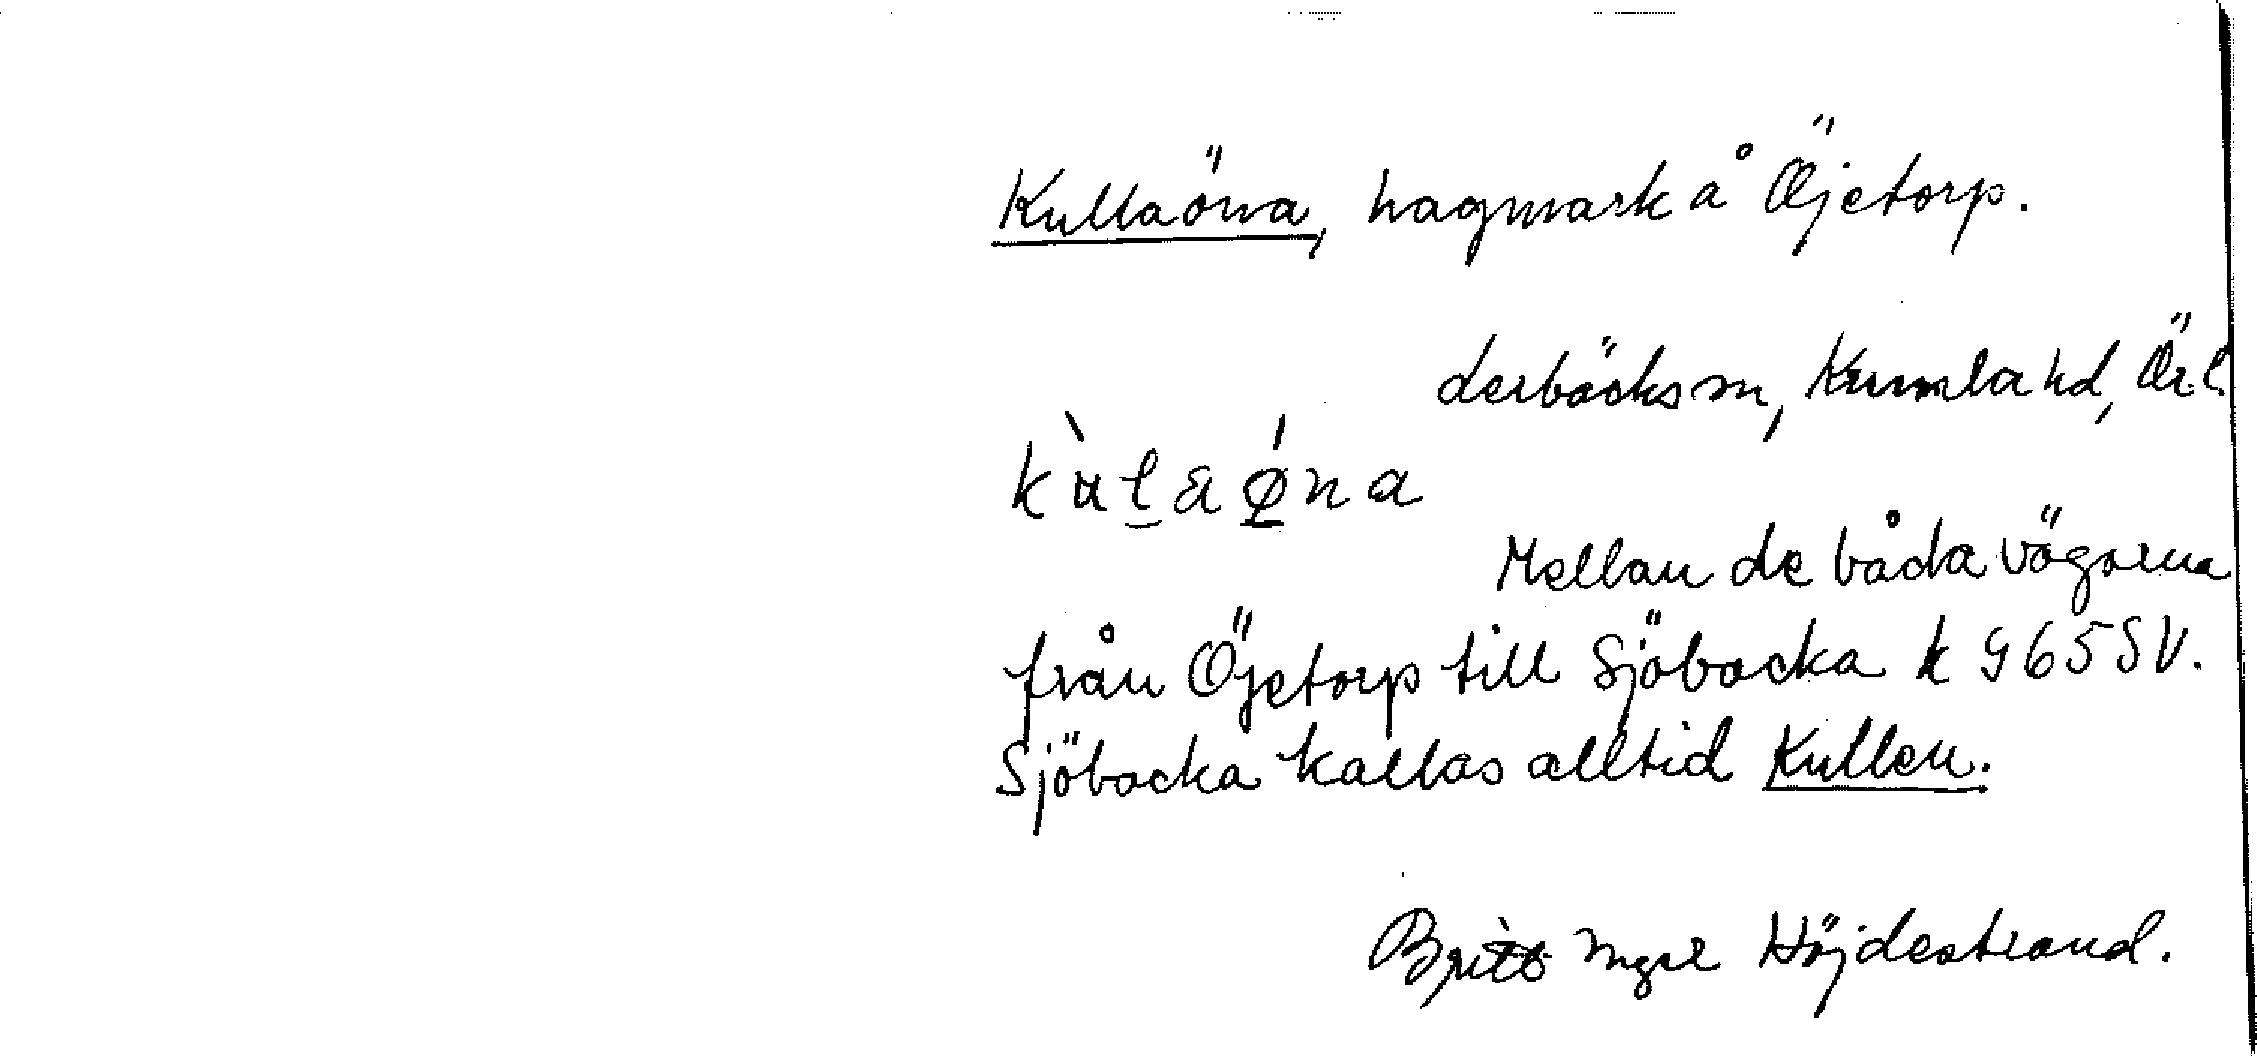 Kullaöna, hagmark å Öjetorp.
Lerbäcks sn, Kumla hd, Ör.l.
kùlaǿna
Mellan de båda vägarna
från Öjetorp till Sjöbacka k 965 SV.
Sjöbacka kallas alltid Kullen.
Höjdestrand.